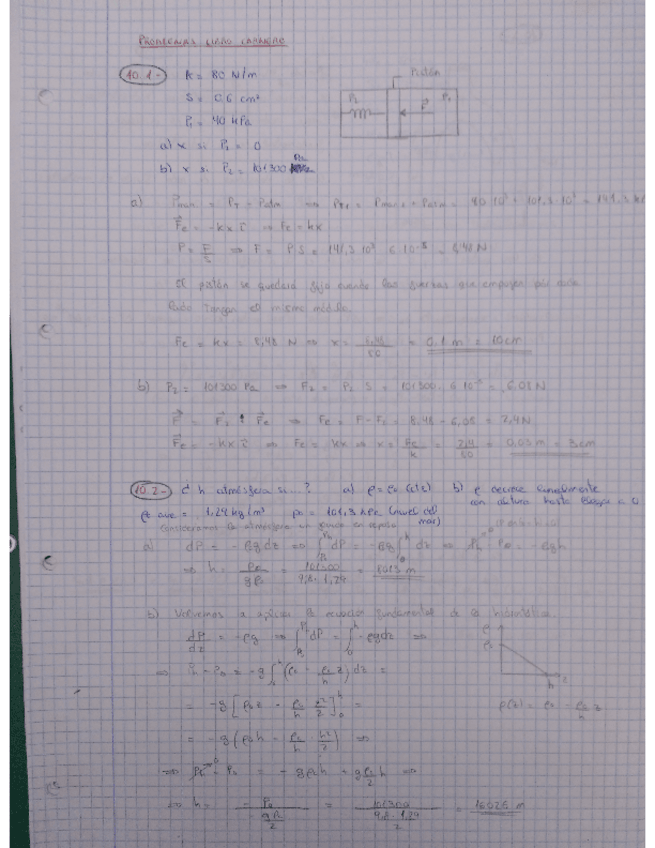 PROBLEMAS LIBRO CARNERO
10.1- K = 80 N/m
S = 0,6 cm²
P₁ = 40 kPa
a) x si P₂ = 0
b) x si P₂ = 101300 Pa
Pistón
P₂ F P₁
a) Pman = PT - Patm ⇒ PT₁ = Pman + Patm = 80 10³ + 101,3·10³ = 141,3
Fe = -kx i ⇒ Fe = kx
P = F/S ⇒ F = P S = 141,3 10³ 6 10⁻⁵ = 8,48 N
El pistón se quedará fijo cuando las fuerzas que empujen por cada
lado tengan el mismo módulo.
Fe = kx = 8,48 N ⇒ x = 8,48/80 = 0,1 m = 10 cm
b) P₂ = 101300 Pa ⇒ F₂ = P₂ S = 101300 · 6 10⁻⁵ = 6,08 N
F = F₂ + Fe ⇒ Fe = F - F₂ = 8,48 - 6,08 = 2,4 N
Fe = -kx i ⇒ Fe = kx ⇒ x = Fe/k = 2,4/80 = 0,03 m = 3 cm
10.2- ¿ h atmósfera si...? a) ρ = ρ₀ (cte) b) ρ decrece linealmente
con altura hasta llegar a 0
= 1,29 kg/m³ p₀ = 101,3 kPa (nivel del
mar)
Consideramos la atmósfera un fluido en reposo
a) dP = -ρg dz ⇒ ∫dP = -ρg ∫₀ʰ dz ⇒ Ph - P₀ = -ρgh
⇒ h = P₀/gρ₀ = 101300/9,8·1,29 = 8013 m
b) Volvemos a aplicar la ecuación fundamental de la hidrostática.
dP/dz = -ρg ⇒ ∫dP = ∫₀ʰ -ρg dz ⇒
⇒ Ph - P₀ = -g ∫₀ʰ (ρ₀ - ρ₀/h z) dz =
= -g [ρ₀ z - ρ₀/h z²/2]₀ʰ =
ρ(z) = ρ₀ - ρ₀/h z
= -g (ρ₀h - ρ₀/h · h²/2) ⇒
⇒ Ph - P₀ = -gρ₀h + gρ₀h/2 ⇒
⇒ h = P₀/(gρ₀/2) = 101300/(9,8·1,29/2) = 16026 m